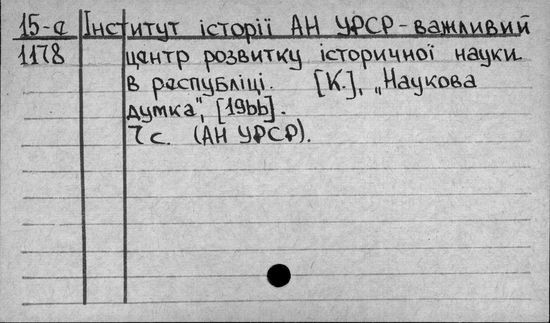 15-а Інститут історії АН УРСР - важливий
1178 центр розвитку історичної науки
в республіці. [К.], „Наукова
думка", [1966].
7 с. (АН УРСР).